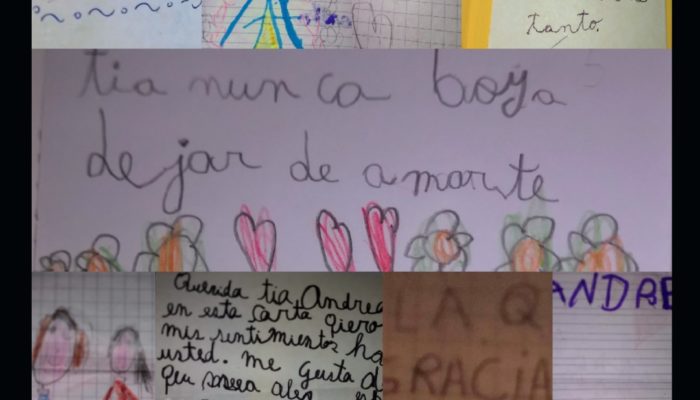 tanto.
tia nunca boya
dejar de amarte
Querida tia Andrea
en esta carta quiero
mis sentimientos ha
usted. me gusta d
LA Q
GRACIA
ANDRE